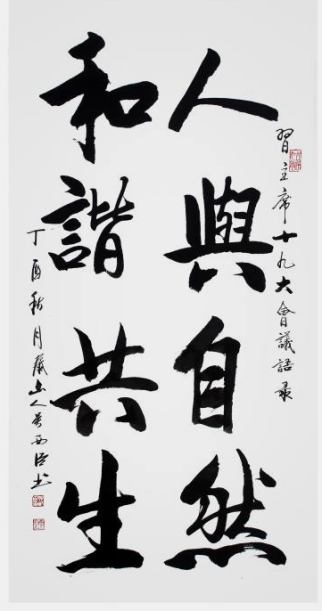 習主席十九大會議語录
人與自然
和諧共生
丁酉秋月山人西书